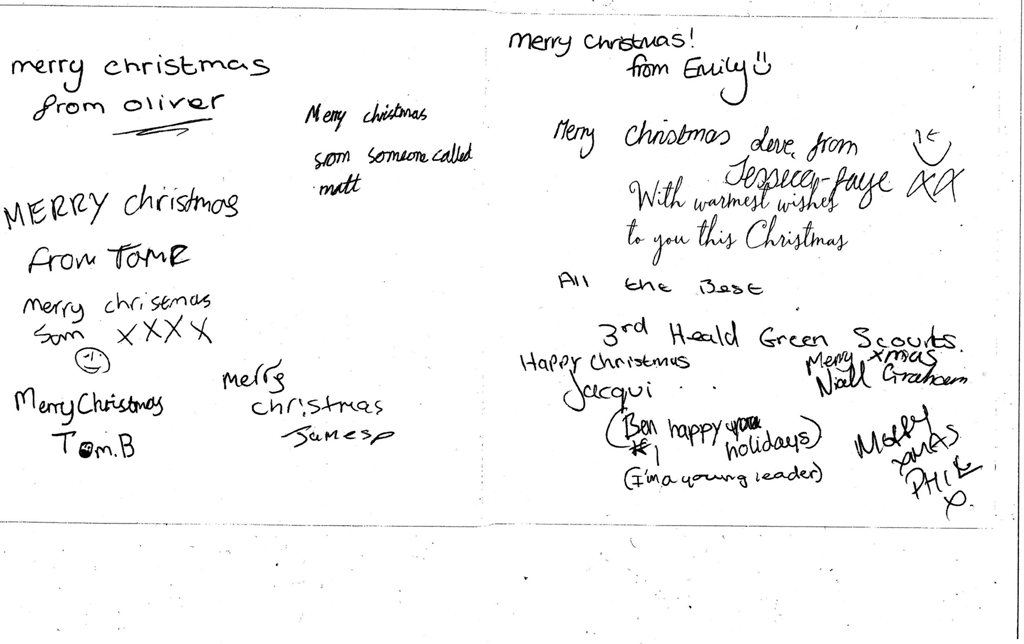 merry christmas
from oliver
Merry christmas
from someone called
matt
MERRY christmas
from TOM R
merry christmas
Sam XXXX
Merry Christmas
Tom.B
merry
christmas
James P
Merry Christmas!
from Emily
Merry Christmas Love, from
Jessica-faye XX
With warmest wishes
to you this Christmas
All the Best
3rd Heald Green Scouts.
Happy Christmas
Jacqui
Merry xmas
Niall Graham
(Ben happy holidays)
(I'm a young leader)
Merry
XMAS
PHIL
X.